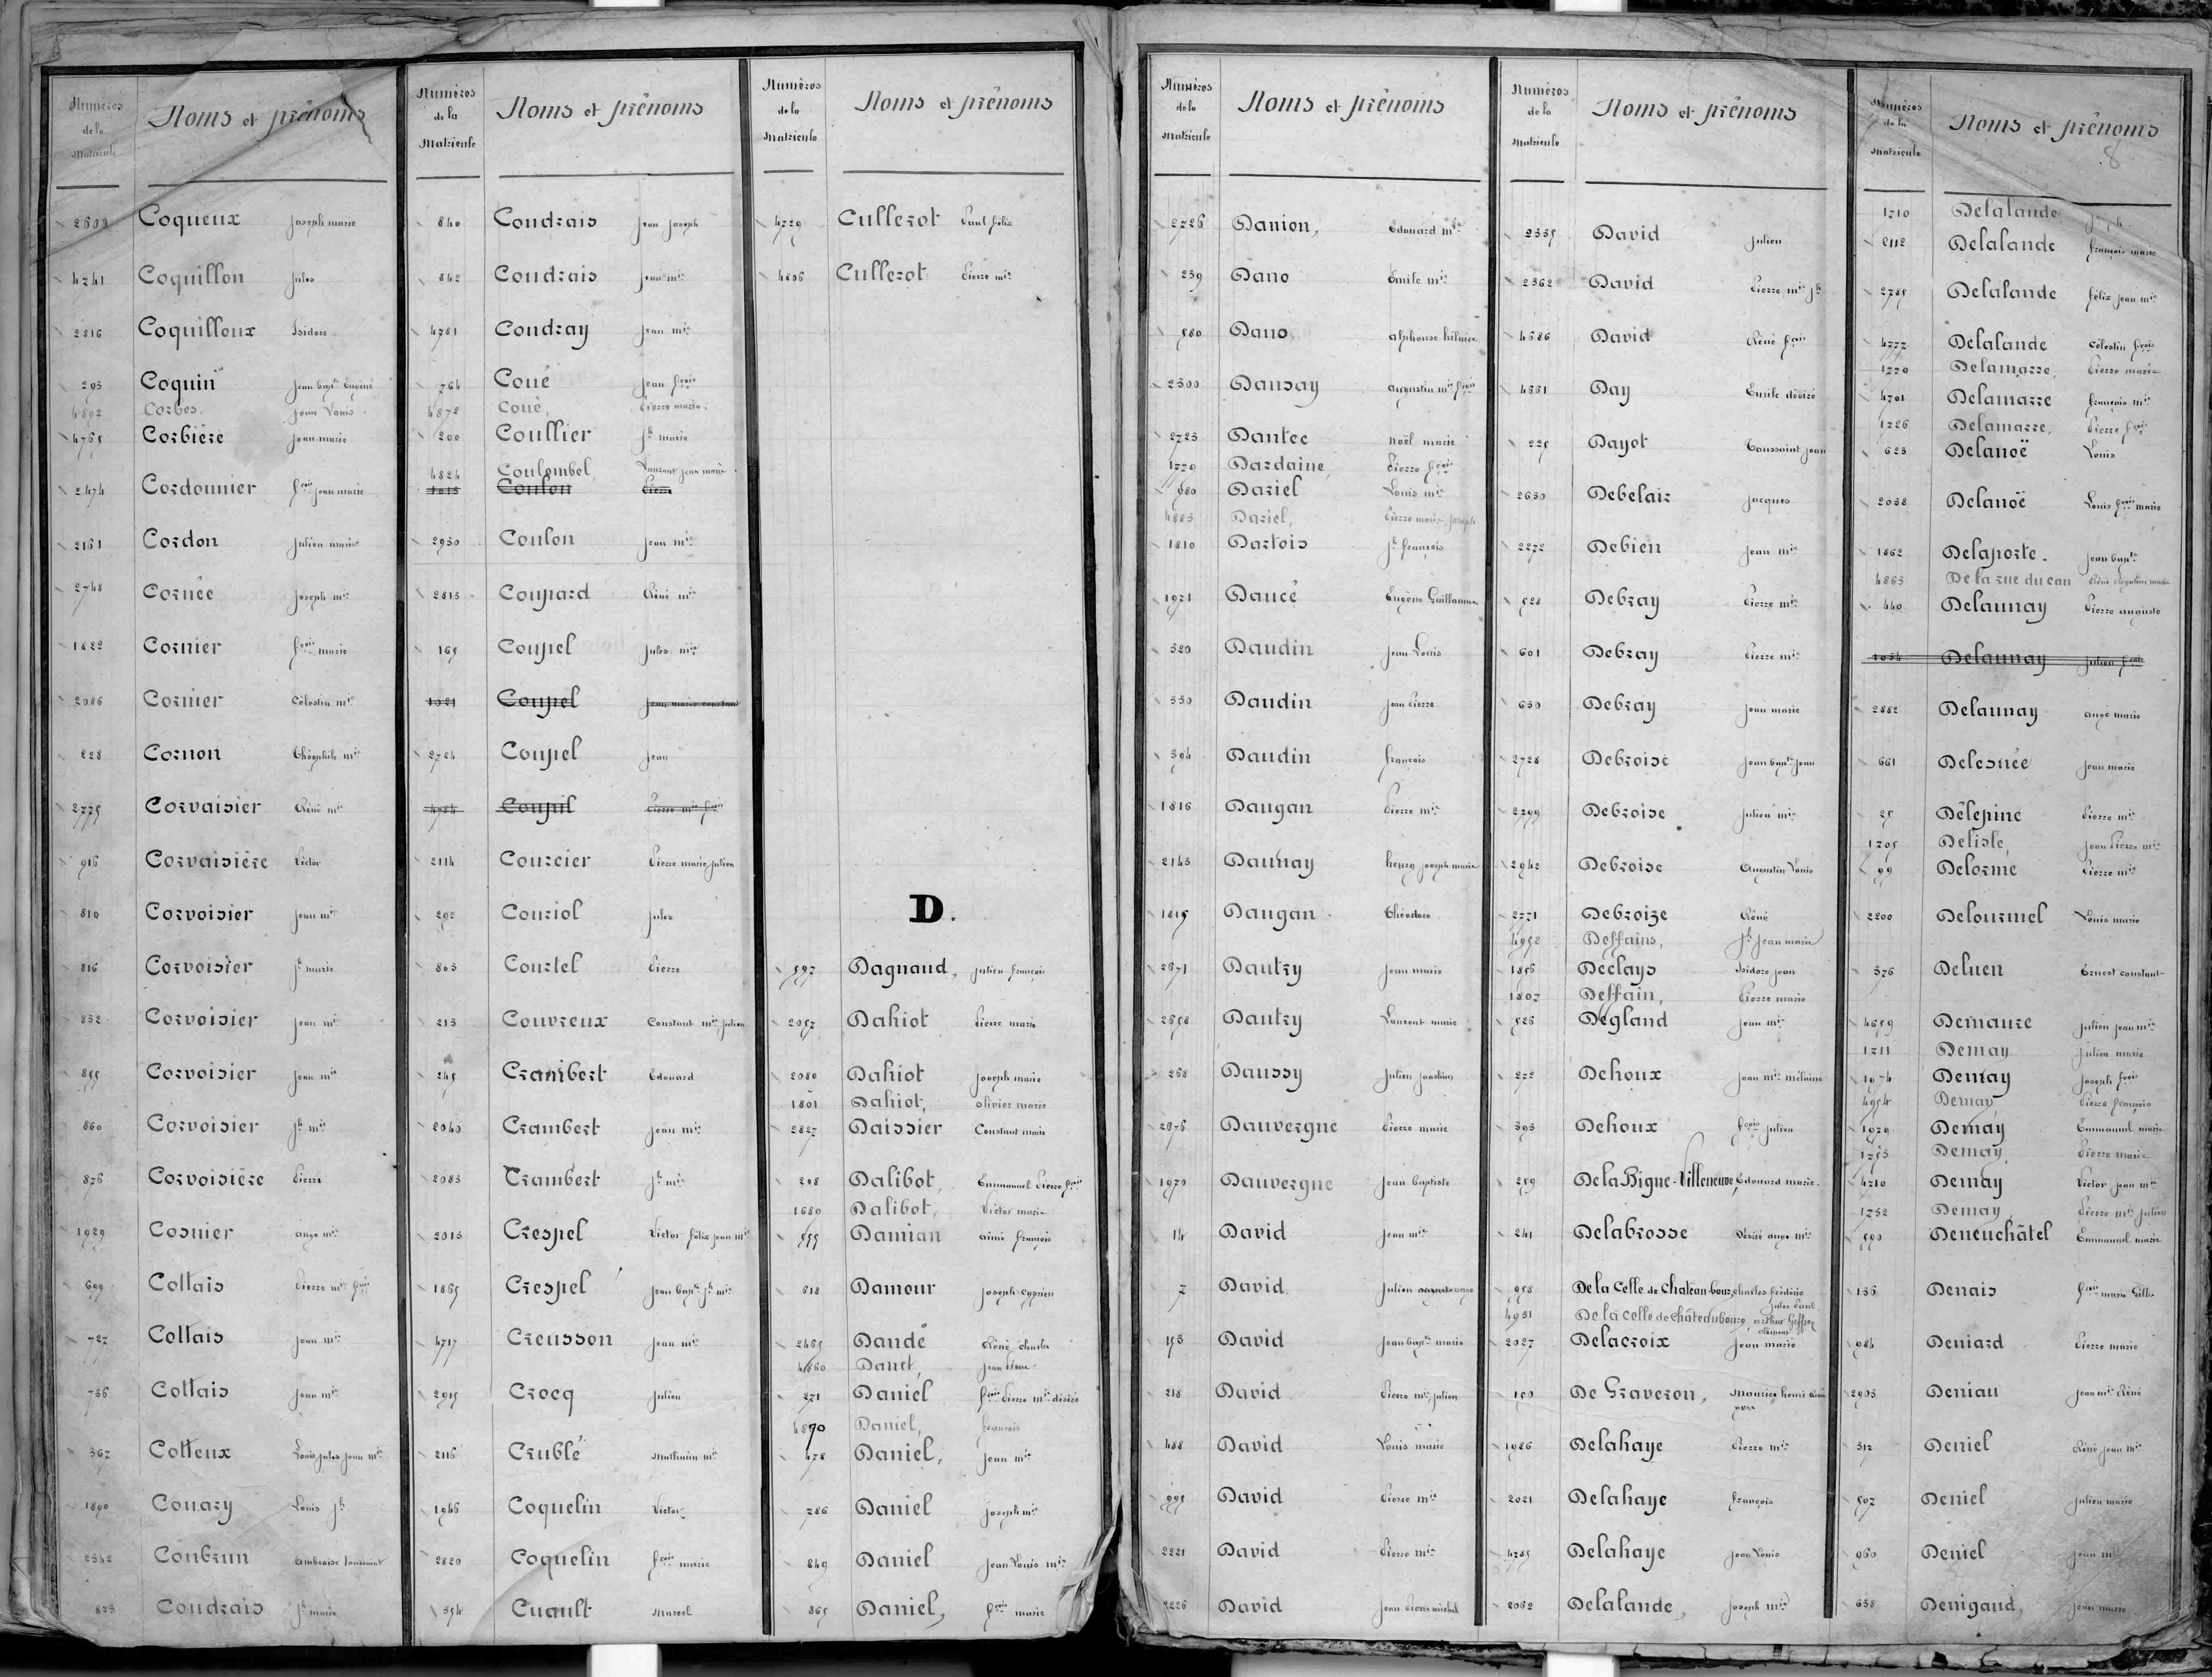 Numéros de la Matricule
Noms et prénoms
Coqueux Joseph marie
4741 Coquillon Jules
2816 Coquilloux Isidore
293 Coquin Jean bapte Eugène
4802 Corbes. Jean Louis.
4765 Corbiere Jean-marie
2474 Cordonnier fcois jean marie
2161 Cordon Julien marie
2748 Cornée Joseph mie
1822 Cornier fcois marie
2086 Cornier Célestin mie
228 Cornon Théophile mie
2775 Corvaisier Réné mie
916 Corvaisière Victor
810 Corvoisier Jean mie
816 Corvoisier Jh marie
832 Corvoisier Jean mie
855 Corvoisier Jean mie
860 Corvoisier Jh mie
876 Corvoisière Pierre
1929 Cosnier ange mie
699 Collais Pierre mie fcois
727 Collais Jean mie
736 Collais Jean mie
362 Colleux Louis jules jean mie
1890 Couary Louis Jh
2342 Coubrun ambroise toussaint
823 Coudrais Jh marie
Numéros de la Matricule
Noms et prénoms
840 Coudrais Jean Joseph
842 Coudrais Jean mie
4781 Coudray Jean mie
764 Coué Jean fcois
4872 Coué, Pierre marie.
200 Coullier Jh marie
4824 Coulombel Laurent jean marie
1015 Coulon Pierre
2930 Coulon Jean mie
2813 Coupard Réné mie
165 Coupel Jules mie
1021 Coupel Jean marie constant
2724 Coupel Jean
4784 Coupil Pierre mie fcois
2114 Courcier Pierre marie julien
292 Couriol Jules
803 Courtel Pierre
213 Couvreux Constant mie julien
245 Crambert Edouard
2040 Crambert Jean mie
2083 Crambert Jh mie
2013 Crespel Victor félix jean mie
1865 Crespel Jean bapte jh mie
4717 Creusson Jean mie
2915 Crocq Julien
2116 Crublé Mathurin mie
1946 Coquelin Victor
2820 Coquelin fcois marie
354 Cuault Marcel
Numéros de la Matricule
Noms et prénoms
4729 Cullerot Paul félix
4806 Cullerot Pierre mie
D.
597 Dagnaud, Julien françois
2057 Dahiot Pierre marie
2080 Dahiot Joseph marie
1801 Dahiot, olivier marie
2827 Daissier Constant marie
208 Dalibot, Emmanuel Pierre fcois
1680 Dalibot, Victor marie
555 Damian aimé françois
618 Damour Joseph cyprien
2465 Dandé Réné charles
4860 Danet, Jean Pierre
271 Daniel fcois Pierre mie désiré
4890 Daniel, françois
478 Daniel, Jean mie
786 Daniel Joseph mie
849 Daniel Jean Louis mie
865 Daniel, fcois marie
Numéros de la Matricule
Noms et prénoms
2726 Danion, Edouard mie
239 Dano Emile mie
580 Dano alphonse hilaire
2300 Dansay augustin mie fcois
2723 Dantec noël marie
1779 Dardaine Pierre fcois
680 Dariel Louis mie
4883 Dariel, Pierre marie Joseph
1810 Dartois Jh françois
1921 Daucé Eugène Guillaume
320 Daudin Jean Louis
330 Daudin Jean Pierre
394 Daudin françois
1816 Daugan Pierre mie
2143 Daunay henry joseph marie
1815 Daugan Théodore
2671 Dautry Jean marie
2658 Dautry Laurent marie
268 Daussy Julien joachim
2676 Dauvergne Pierre marie
1979 Dauvergne Jean baptiste
14 David Jean mie
7 David Julien ange
153 David Jean bapte marie
218 David Pierre mie julien
488 David Louis marie
995 David Pierre mie
2221 David Pierre mie
2226 David Jean Pierre michel
Numéros de la Matricule
Noms et prénoms
2335 David Julien
2362 David Pierre mie jh
4686 David Réné fcois
4661 Day Emile désiré
225 Dayot Toussaint jean
2630 Debelair Jacques
2272 Debien Jean mie
528 Debray Pierre mie
601 Debray Pierre mie
630 Debray Jean marie
2728 Debroise Jean bapte jean
2799 Debroise Julien mie
2942 Debroise Augustin Louis
2771 Debroize Réné
4952 Deffains, Jh Jean marie
1856 Déclays Isidore jean
1807 Deffain, Pierre marie
526 Degland Jean mie
272 Dehoux Jean mie mélaine
393 Dehoux fcois julien
259 De la Bigne-Villeneuve, Edouard marie.
241 Delabrosse Désiré ange mie
958 De la Celle de Chateau-bourg charles frédéric jules Paul
4951 De la Celle de châteaubourg, arthur Geffroy clément
2027 Delacroix Jean marie
150 De Graveron, Maurice henri Réné yves
1986 Delahaye Pierre mie
2021 Delahaye françois
4785 Delahaye Jean Louis
2062 Delalande, Joseph mie
Numéros de la Matricule
Noms et prénoms
8
1710 Delalande
2112 Delalande françois marie
2785 Delalande félix jean mie
4777 Delalande Célestin fcois
1770 Delamarre, Pierre marie
4701 Delamarre françois mie
1726 Delamarre, Pierre fcois
623 Delanoë Louis
2038 Delanoë Louis fcois marie
1862 Delaporte. Jean bapte
4863 De la rue du can Réné marie
440 Delaunay Pierre auguste
1034 Delaunay Julien fcois
2882 Delaunay ange marie
661 Delesnée Jean marie
25 Délepine Pierre mie
1705 Delisle, Jean Pierre mie
99 Delorme Pierre mie
2200 Delourmel Louis marie
376 Deluen Ernest constant
4659 Demaure Julien jean mie
1711 Demay Julien marie
1974 Demay Joseph fcois
4954 Demay Pierre françois
1929 Demay Emmanuel marie
1753 Demay, Pierre marie
4210 Demay Victor jean mie
1752 Demay, Pierre mie julien
590 Deneuchâtel Emmanuel marie
136 Denais fcois marie Gilles
984 Deniard Pierre marie
2903 Deniau Jean mie Réné
317 Deniel Réné jean mie
507 Deniel Julien marie
960 Deniel Jean mie
638 Denigaud, Jean marie